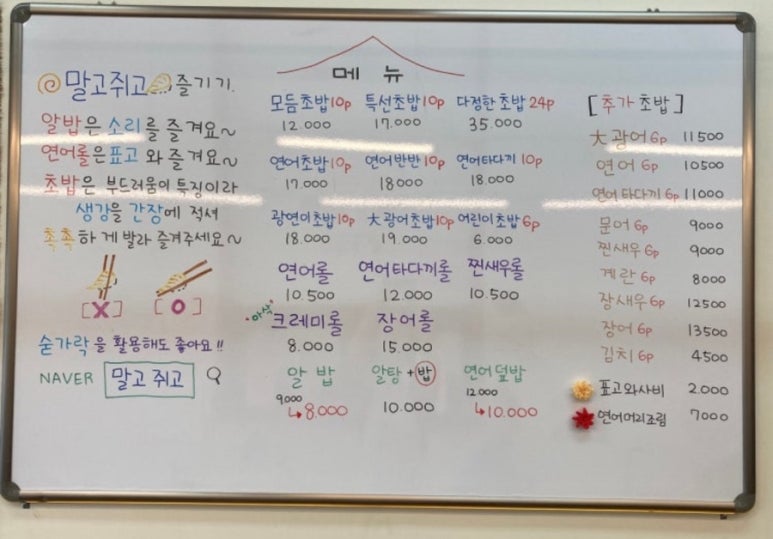 말고쥐고 즐기기.
알밥은 소리를 즐겨요~
연어롤은 표고와 즐겨요~
초밥은 부드러움이 특징이라
생강을 간장에 적셔
촉촉하게 발라 즐겨주세요~
[X] [O]
숟가락을 활용해도 좋아요!!
NAVER 말고 쥐고
메 뉴
모듬초밥10p 특선초밥10p 다정한초밥24p
12.000 17.000 35.000
연어초밥10p 연어반반10p 연어타다끼10p
17.000 18000 18.000
광연이초밥10p 大광어초밥10p 어린이초밥6p
18.000 19.000 6.000
연어롤 연어타다끼롤 찐새우롤
10.500 12.000 10.500
·아삭·
크레미롤 장어롤
8.000 15.000
알 밥 알탕+밥 연어덮밥
9,000 12.000
↳8,000 10.000 ↳10.000
[추가 초밥]
大광어6p 11500
연어6p 10500
연어타다끼6p 11000
문어6p 9000
찐새우6p 9000
계란6p 8000
장새우6p 12500
장어6p 13500
김치6p 4500
표고와사비 2.000
연어머리조림 7000